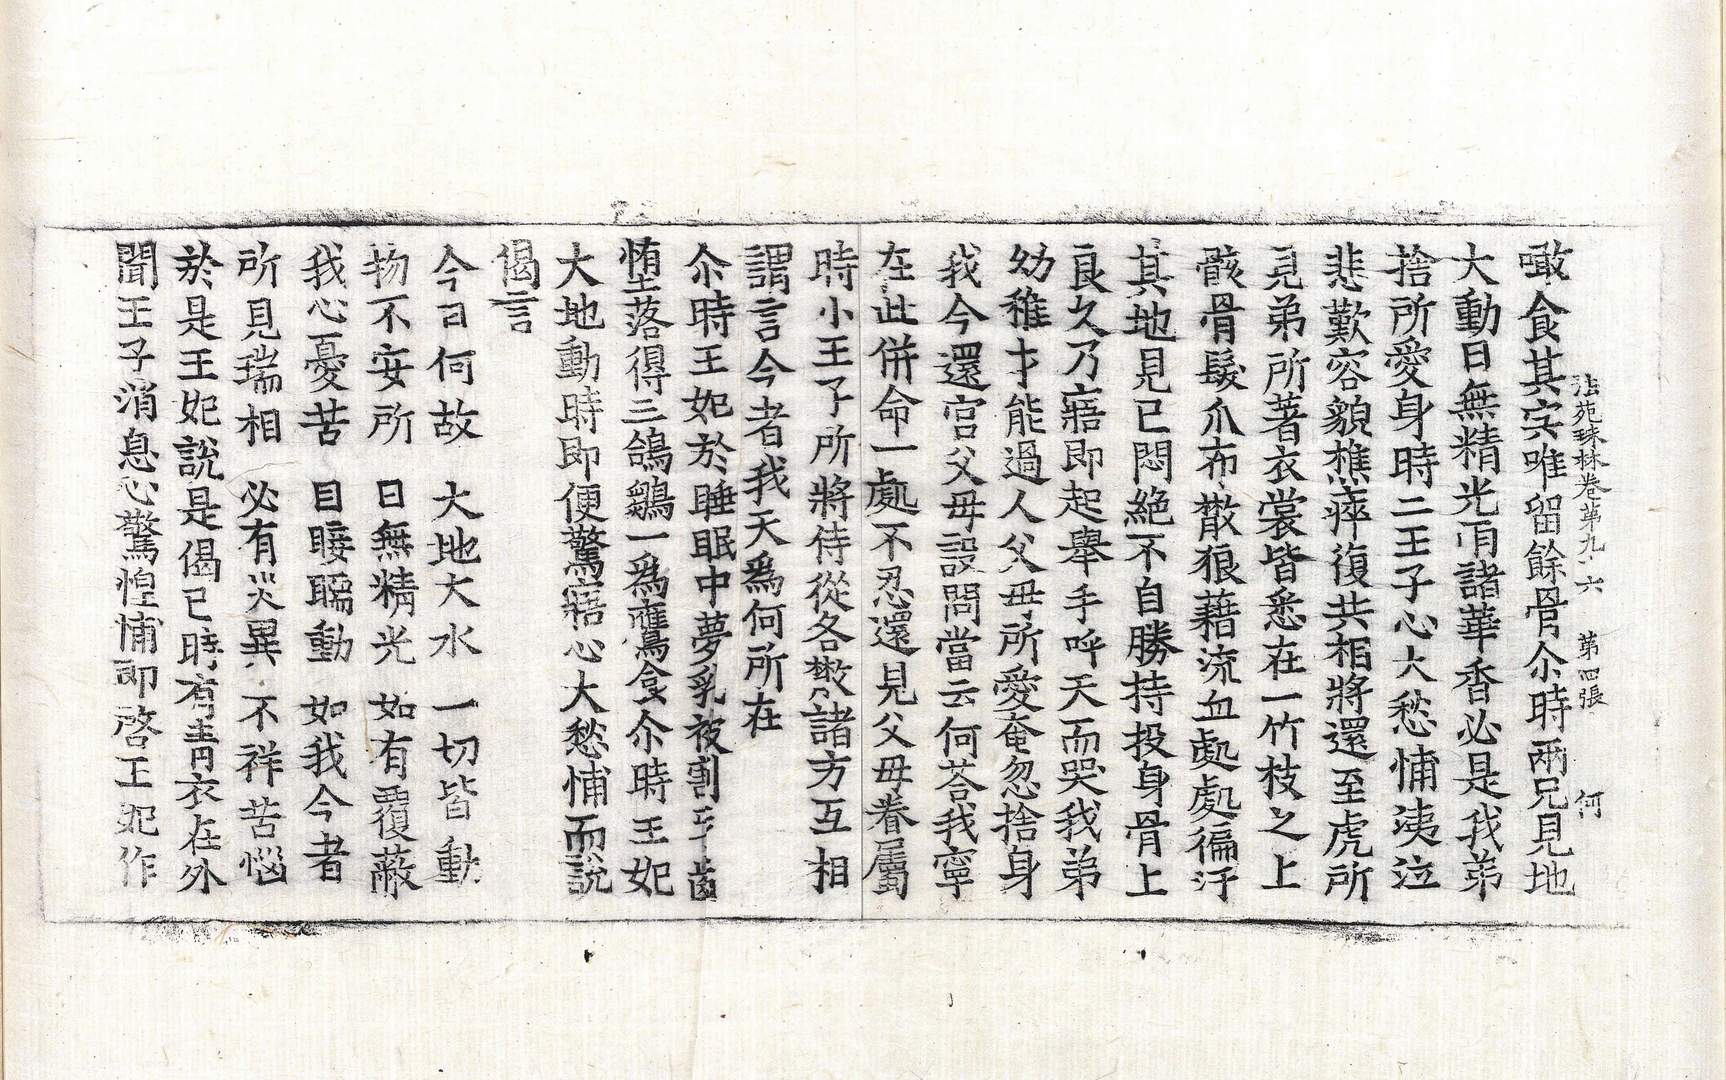 法苑珠林卷第九十六 第四張 何
噉食其宍唯留餘骨尒時兩兄見地
大動日無精光雨諸華香必是我弟
捨所愛身時二王子心大愁怖洟泣
悲歎容顇憔瘁復共相將還至虎所
見弟所著衣裳皆悉在一竹枝之上
骸骨髮爪布散狼藉流血處處徧汙
其地見已悶絕不自勝持投身骨上
良久乃寤即起舉手呼天而哭我弟
幼稚才能過人父母所愛奄忽捨身
我今還宮父母設問當云何荅我寧
在此併命一處不忍還見父母眷屬
時小王子所將侍從各散諸方互相
謂言今者我天爲何所在
尒時王妃於睡眠中夢乳被割牙齒
墮落得三鴿鶵一爲鷹食尒時王妃
大地動時即便驚寤心大愁怖而說
偈言
今日何故 大地大水 一切皆動
物不安所 日無精光 如有覆蔽
我心憂苦 目睫瞤動 如我今者
所見瑞相 必有災異 不祥苦惱
於是王妃說是偈已時有青衣在外
聞王子消息心驚惶怖即啓王妃作